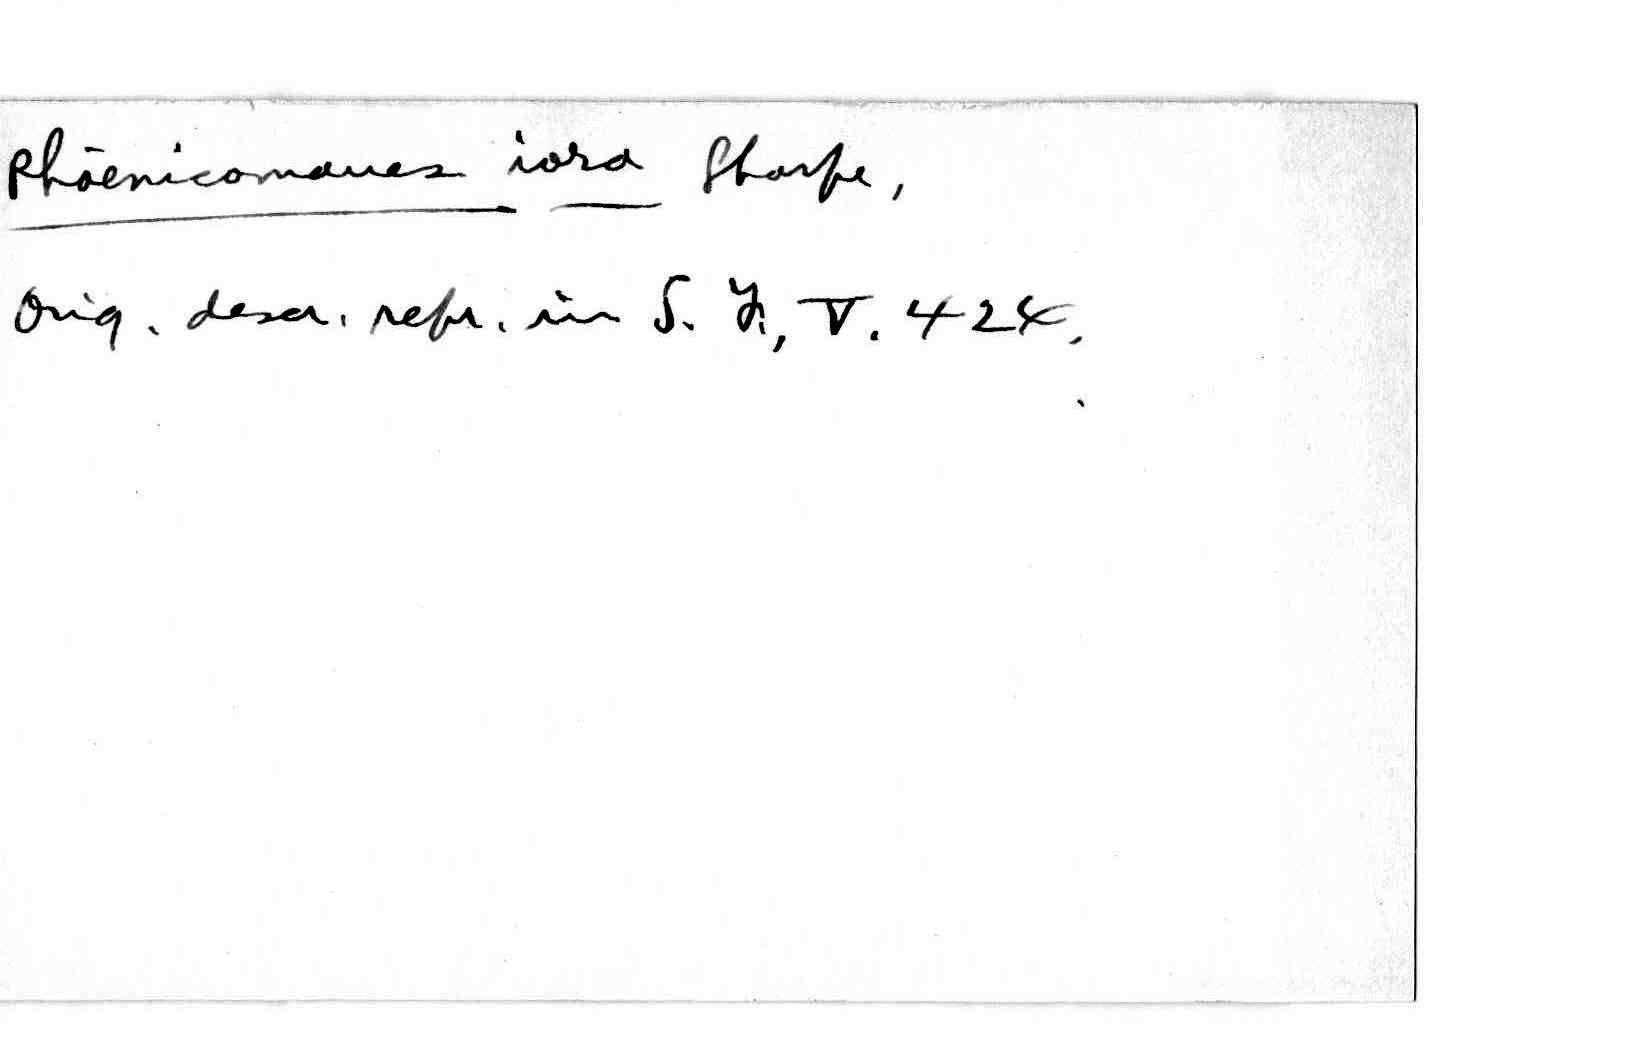 Phöenicomanes iora Sharpe,
Orig. descr. repr. in S. F., V. 424.